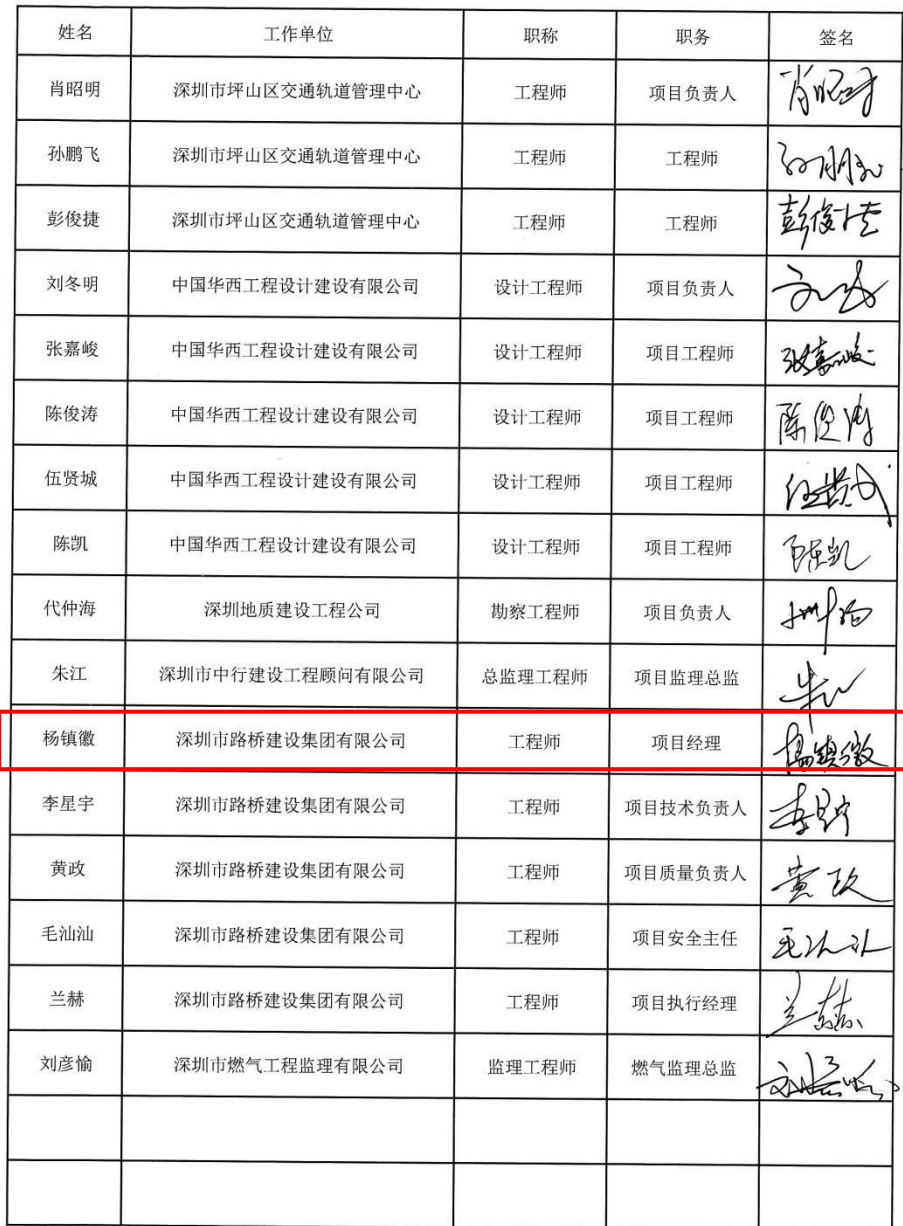 姓名 工作单位 职称 职务 签名
肖昭明 深圳市坪山区交通轨道管理中心 工程师 项目负责人 肖昭明
孙鹏飞 深圳市坪山区交通轨道管理中心 工程师 工程师 孙鹏飞
彭俊捷 深圳市坪山区交通轨道管理中心 工程师 工程师 彭俊捷
刘冬明 中国华西工程设计建设有限公司 设计工程师 项目负责人
张嘉峻 中国华西工程设计建设有限公司 设计工程师 项目工程师 张嘉峻
陈俊涛 中国华西工程设计建设有限公司 设计工程师 项目工程师 陈俊涛
伍贤城 中国华西工程设计建设有限公司 设计工程师 项目工程师 伍贤城
陈凯 中国华西工程设计建设有限公司 设计工程师 项目工程师 陈凯
代仲海 深圳地质建设工程公司 勘察工程师 项目负责人
朱江 深圳市中行建设工程顾问有限公司 总监理工程师 项目监理总监 朱江
杨镇徽 深圳市路桥建设集团有限公司 工程师 项目经理 杨镇徽
李星宇 深圳市路桥建设集团有限公司 工程师 项目技术负责人 李星宇
黄政 深圳市路桥建设集团有限公司 工程师 项目质量负责人 黄政
毛汕汕 深圳市路桥建设集团有限公司 工程师 项目安全主任 毛汕汕
兰赫 深圳市路桥建设集团有限公司 工程师 项目执行经理 兰赫
刘彦愉 深圳市燃气工程监理有限公司 监理工程师 燃气监理总监 刘彦愉